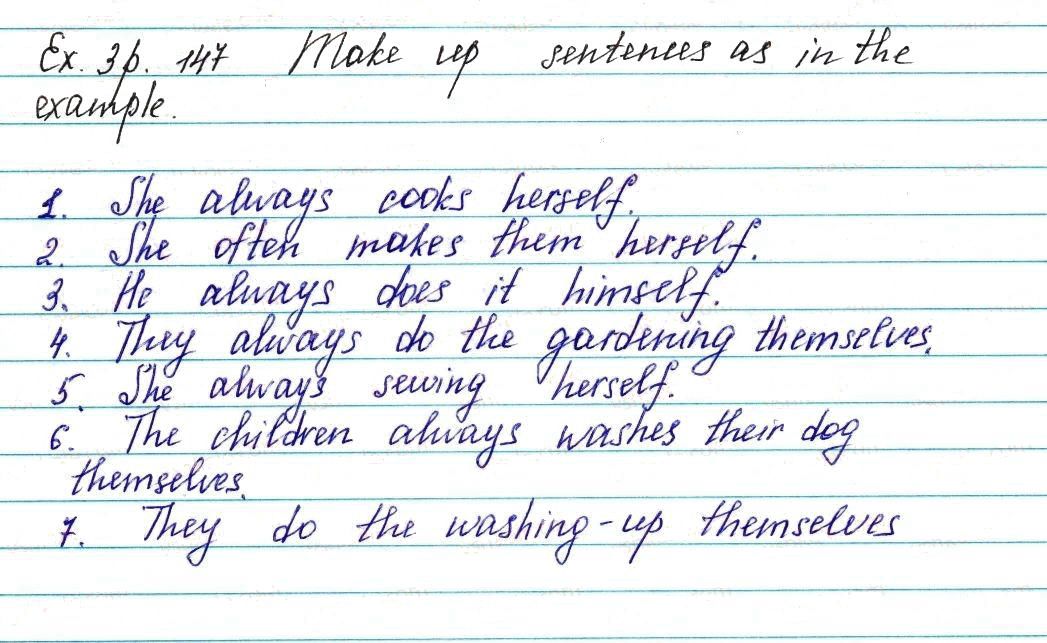 Ex. 3 p. 147 Make up sentences as in the
example.
1. She always cooks herself.
2. She often makes them herself.
3. He always does it himself.
4. They always do the gardening themselves.
5. She always sewing herself.
6. The children always washes their dog
themselves.
7. They do the washing-up themselves